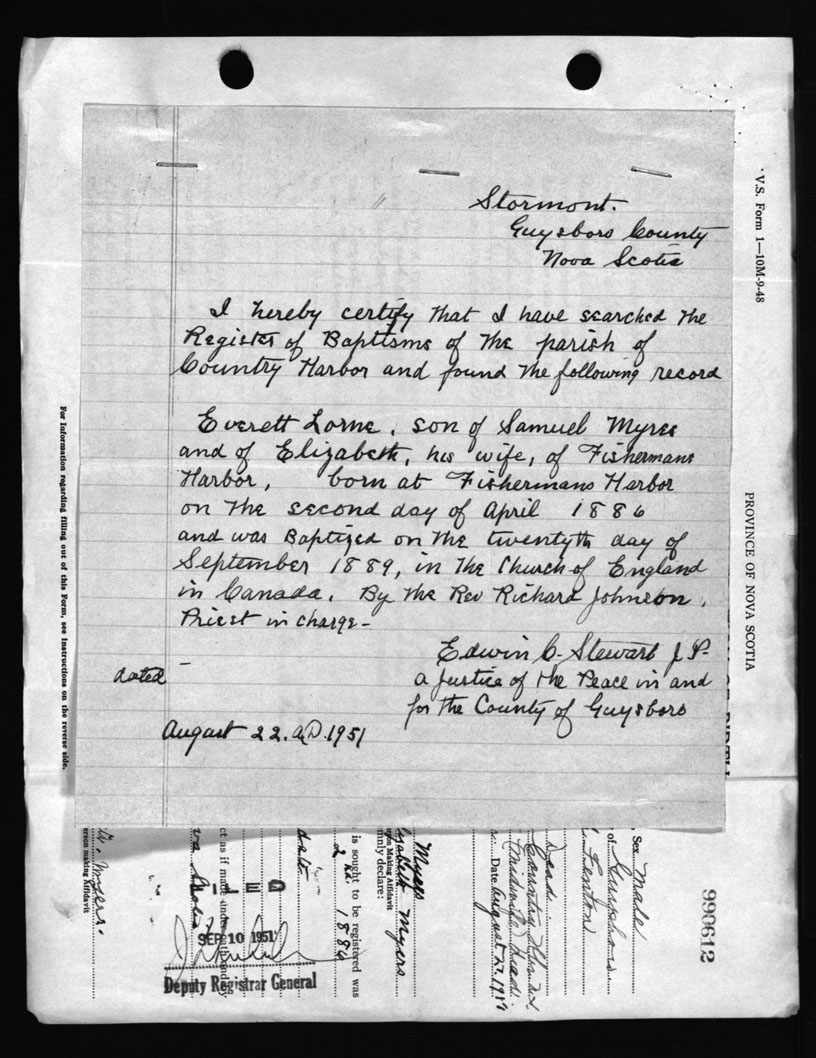 Stormont.
Guysboro County
Nova Scotia
I hereby certify that I have searched the
Register of Baptisms of the parish of
Country Harbor and found the following record
Everett Lorne, son of Samuel Myres
and of Elizabeth, his wife, of Fishermans
Harbor, born at Fishermans Harbor
on the second day of April 1886
and was Baptized on the twentyth day of
September 1889, in the Church of England
in Canada. By the Rev Richard Johnson,
Priest in charge-
Edwin C. Stewart J P.
a Justice of the Peace in and
for the County of Guysboro
dated -
August 22. AD. 1951
V.S. Form 1—10M-9-48
PROVINCE OF NOVA SCOTIA
For Information regarding filling out of this Form, see Instructions on the reverse side.
990612
Sex Male
of Guysboro
Fenton
Dead
Date August 22, 195
Myers
Elizabeth Myers
rson Making Affidavit
mnly declare:
is sought to be registered was
2 nd 1886
date
ct as if made under
SEP 10 1951
Deputy Registrar General
Myers.
erson making Affidavit